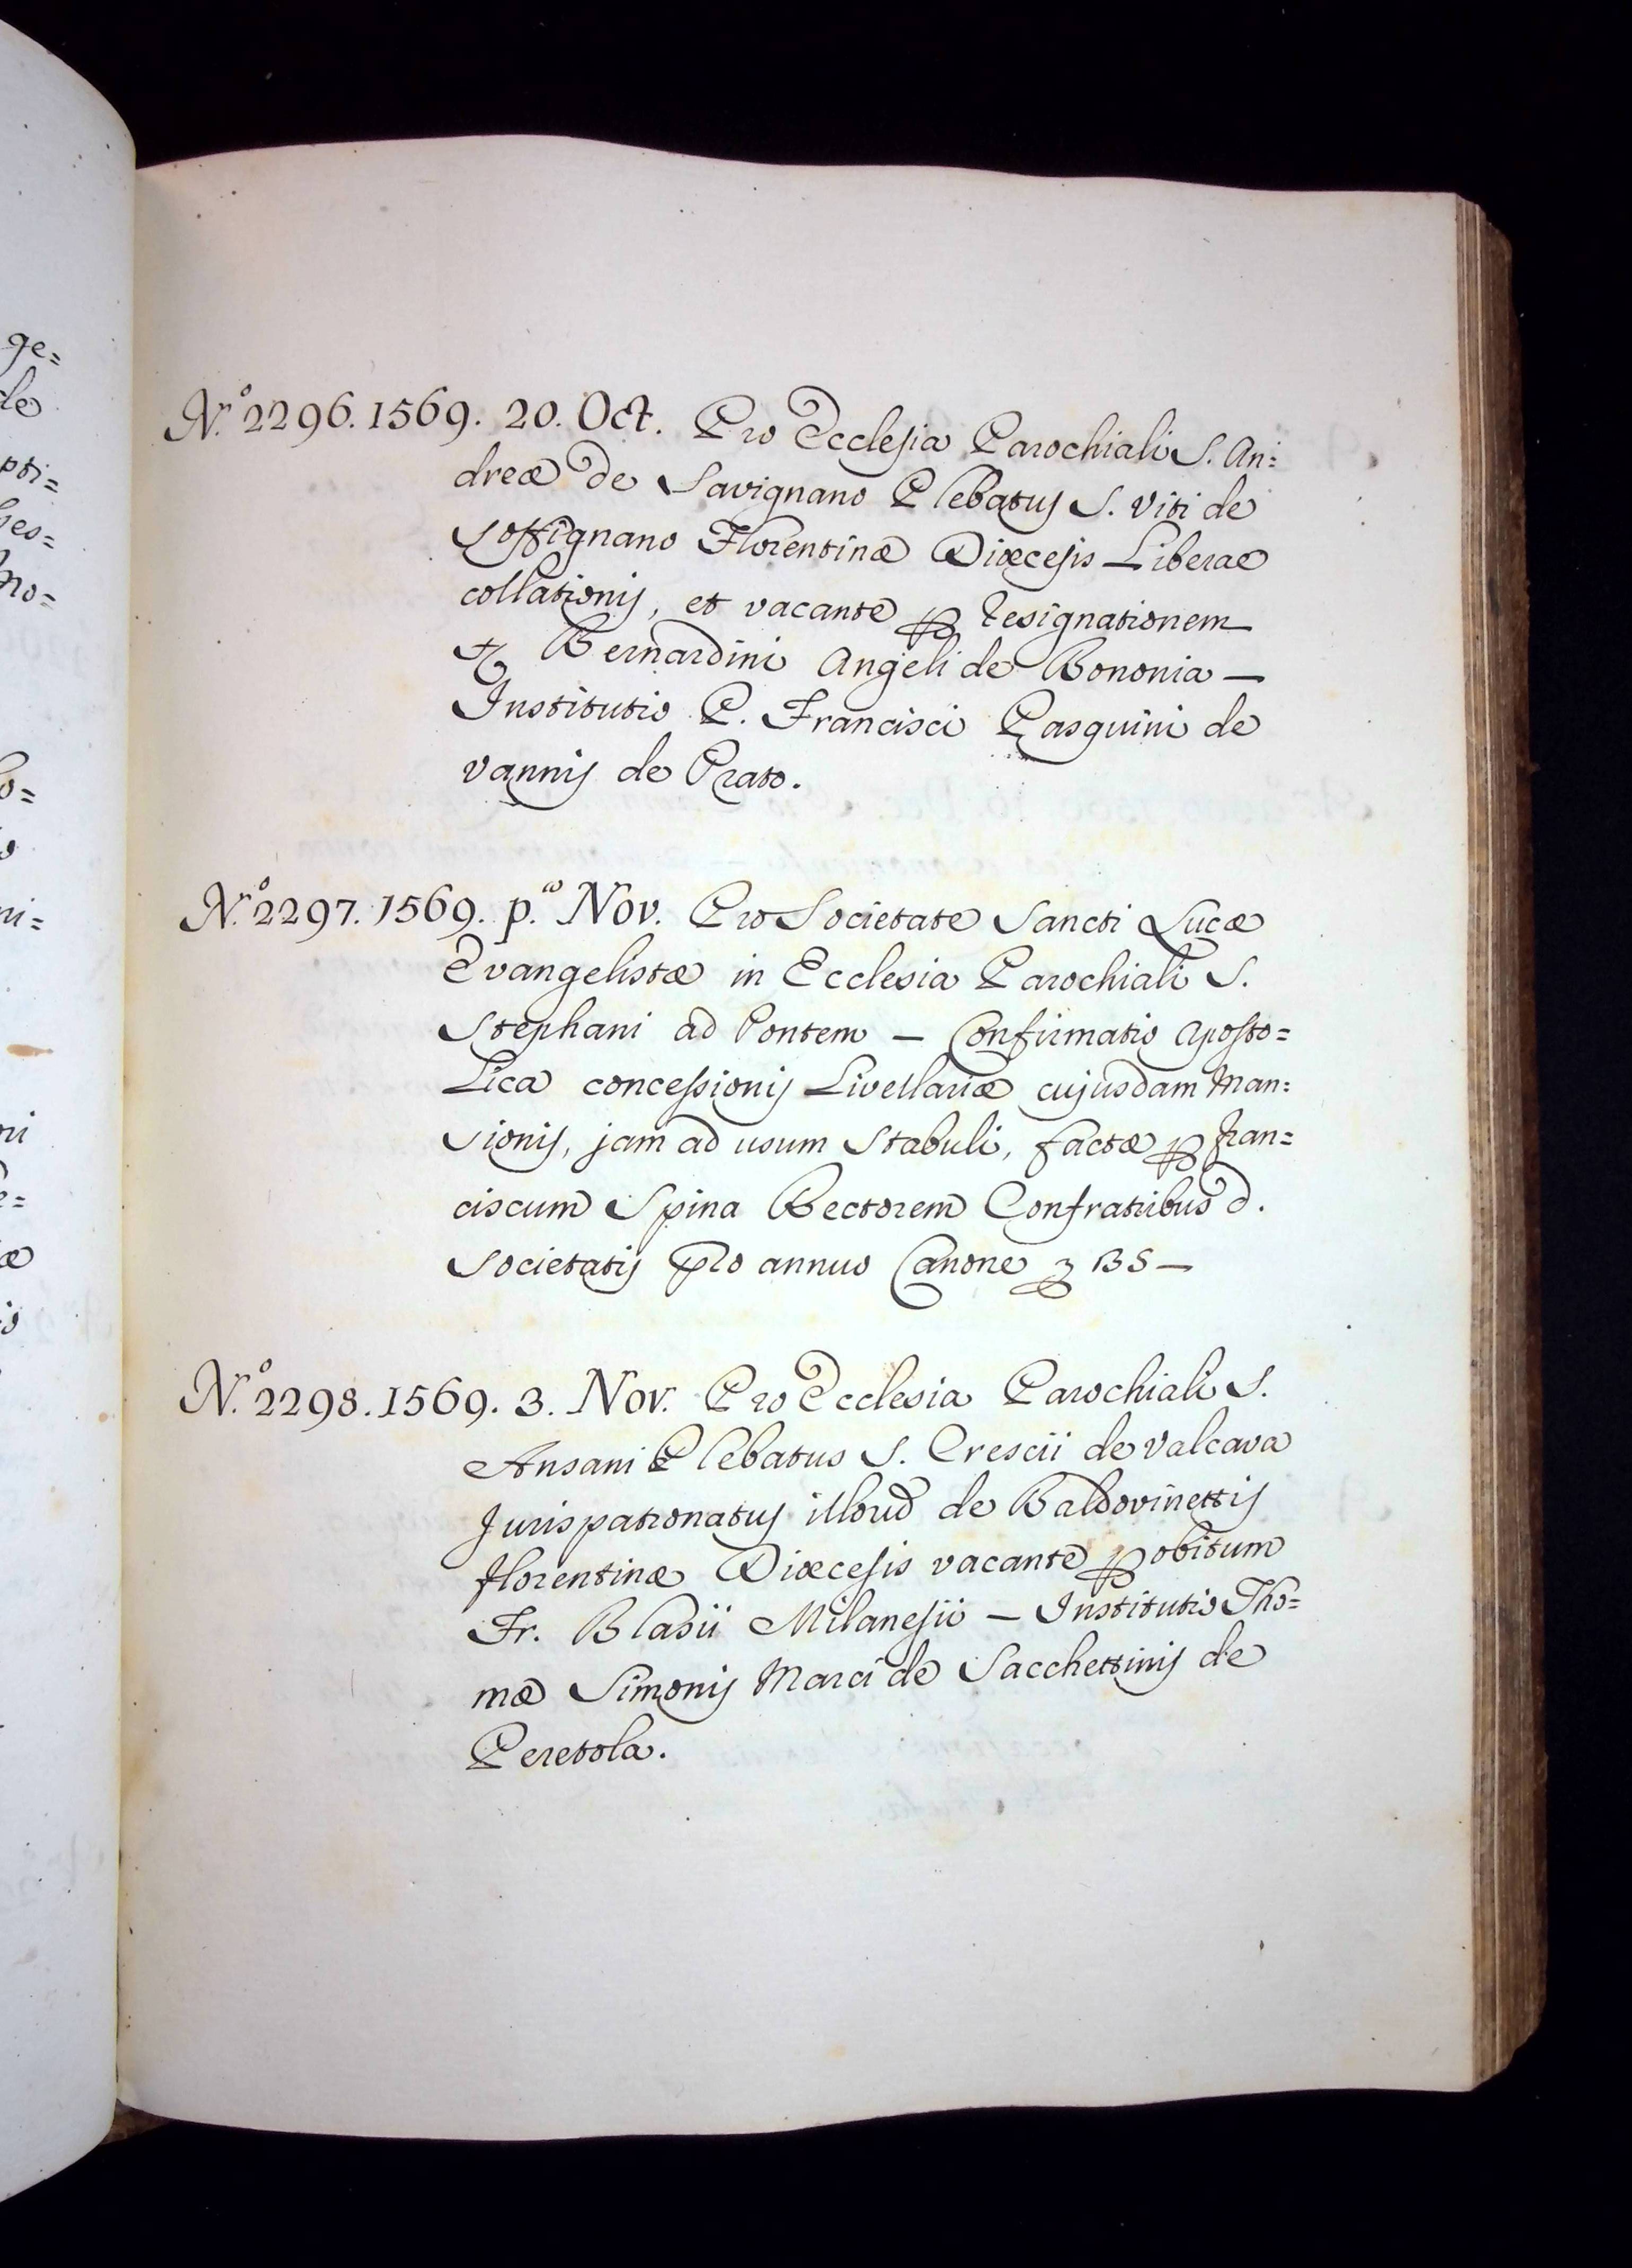 ge=
de
pti=
hes=
mo=
o=
ni=
ni
e=
æ
is
N.º 2296. 1569. 20. Oct. Pro Ecclesia Parochiali S. An=
dreæ de Savignano Plebatus S. Viti de
Soffignano Florentinæ Diœcesis Liberae
collationis, et vacante ꝑ resignationem
Bernardini Angeli de Bononia —
Institutio P. Francisci Pasquini de
Vannis de Prato.
N.º 2297. 1569. p.ª Nov. Pro Societate Sancti Lucæ
Evangelistæ in Ecclesia Parochiali S.
Stephani ad Pontem — Confirmatio Aposto=
lica concessionis Livellariæ cujusdam Man=
sionis, jam ad usum Stabuli, factæ ꝑ Fran=
ciscum Spina Rectorem Confratribus d.
Societatis pro annuo Canone
N.º 2298. 1569. 3. Nov. Pro Ecclesia Parochiali S.
Ansani Plebatus S. Crescii de Valcava
Jurispatronatus illorud de Baldovinettis
florentinæ Diœcesis vacante ꝑ obitum
Fr. Blasii Milanesii — Institutio Tho=
mæ Simonis Marci de Sacchettinis de
Peretola.